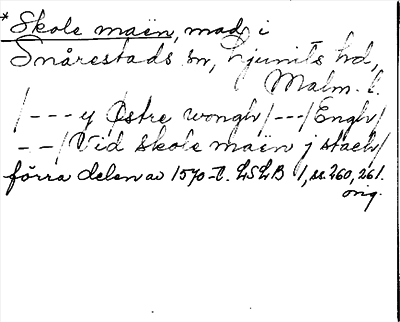 * Skole maën, mad i
Snårestads sn, Ljunits hd,
Malm. l.
/--- y Østre wongh/---/Engh/
--/Vid skole maën j staeh/
förra delen av 1570-t. LSLB 1, s. 260, 261.
orig.